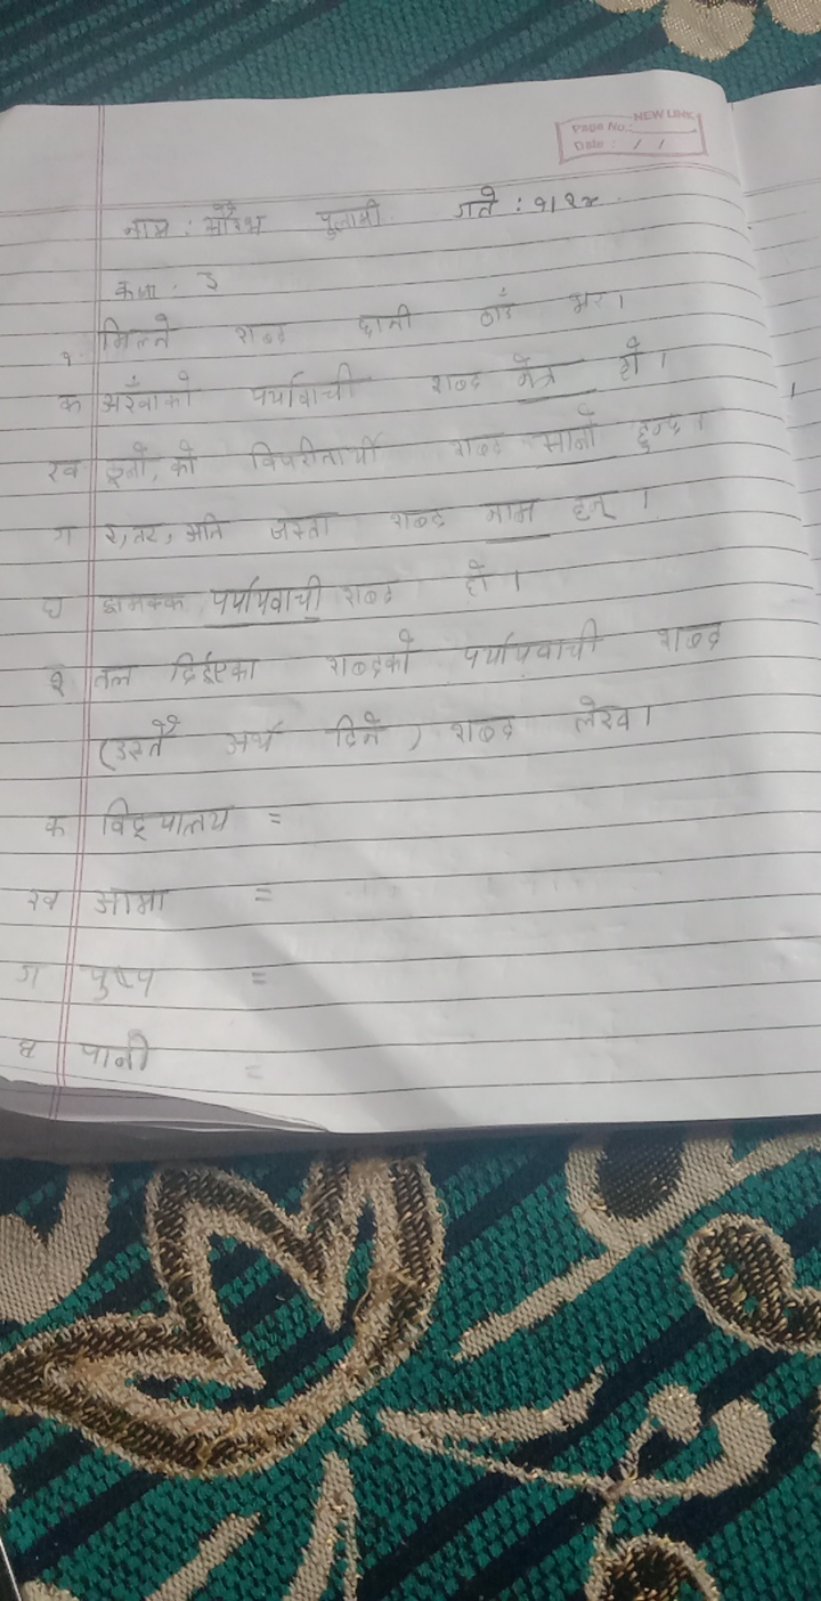 NEW LINK
Page No.:
Date : / /
नाम : सौरभ पुलामी गते : १।२४
कक्षा : ३
१ मिल्ने शब्द छानी ठाउँ भर।
क आँखाको पर्यावाची शब्द नेत्र हो।
ख ठूलो, को विपरीतार्थी शब्द सानो हुन्छ।
ग र, तर, अनि जस्ता शब्द नाम हुन्।
घ झमक्क पर्यायवाची शब्द हो।
२ तल दिईएका शब्दको पर्यायवाची शब्द
(उस्तै अर्थ दिने) शब्द लेख।
क विद्यालय =
ख आमा =
ग पुष्प =
घ पानी =